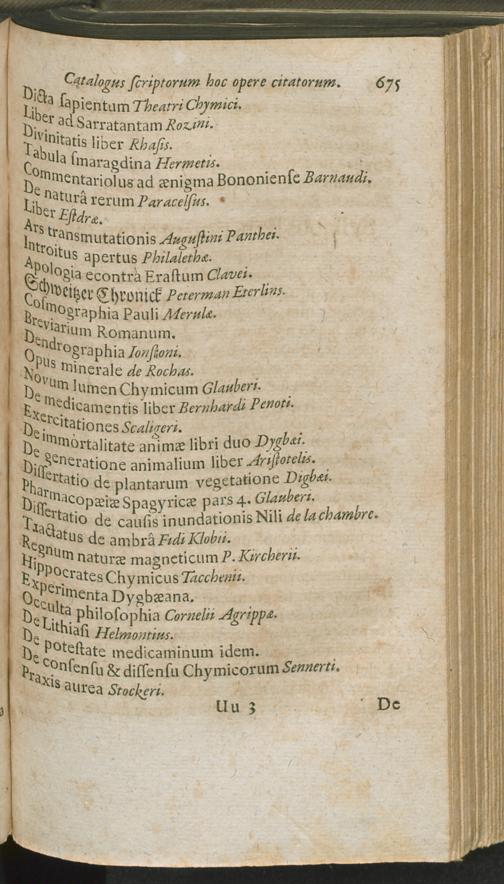 Catalogus ſcriptorum hoc opere citatorum. 675
Dicta ſapientum Theatri Chymici.
Liber ad Sarratantam Rozini.
Divinitatis liber Rhaſis.
Tabula ſmaragdina Hermetis.
Commentariolus ad ænigma Bononienſe Barnaudi.
De naturâ rerum Paracelſus.
Liber Eſdræ.
Ars transmutationis Auguſtini Panthei.
Introitus apertus Philalethæ.
Apologia econtrà Eraſtum Clavei.
Schweitzer Chronick Peterman Eterlins.
Coſmographia Pauli Merulæ.
Breviarium Romanum.
Dendrographia Ionſtoni.
Opus minerale de Rochas.
Novum lumen Chymicum Glauberi.
De medicamentis liber Bernhardi Penoti.
Exercitationes Scaligeri.
De immortalitate animæ libri duo Dygbæi.
De generatione animalium liber Ariſtotelis.
Diſſertatio de plantarum vegetatione Digbæi.
Pharmacopæiæ Spagyricæ pars 4. Glauberi.
Diſſertatio de cauſis inundationis Nili de la chambre.
Tractatus de ambrâ Fidi Klobii.
Regnum naturæ magneticum P. Kircherii.
Hippocrates Chymicus Tacchenii.
Experimenta Dygbæana.
Occulta philoſophia Cornelii Agrippæ.
De Lithiaſi Helmontius.
De poteſtate medicaminum idem.
De conſenſu & diſſenſu Chymicorum Sennerti.
Praxis aurea Stockeri.
Uu 3 De